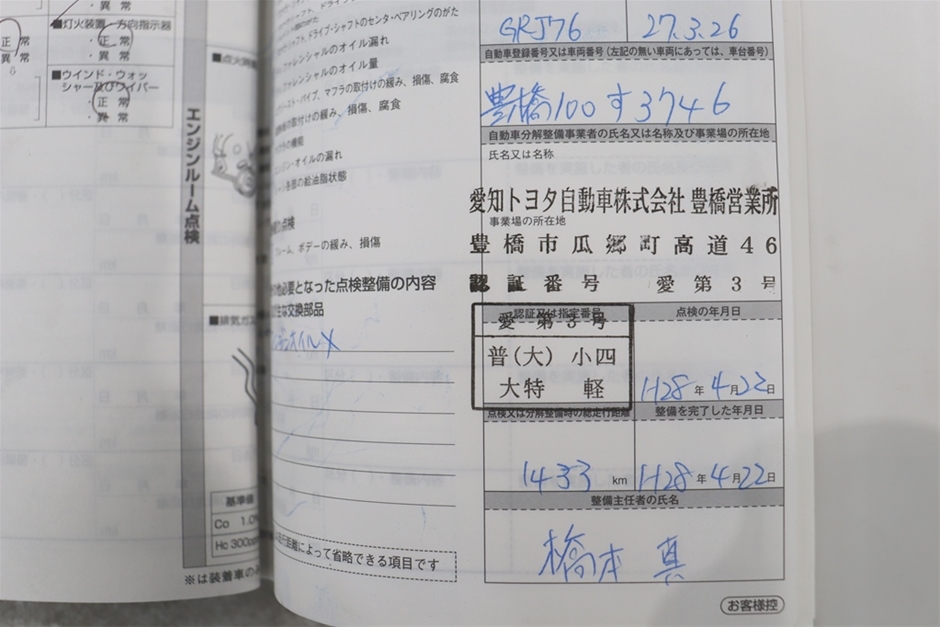 ■灯火装置・方向指示器
正 常
・異 常
・正 常
・異 常
■ウインド・ウォッ
シャー及びワイパー
・正 常
・異 常
エンジンルーム点検
基準値
Co
Hc 300ppm
シャフト、ドライブ・シャフトのセンタ・ベアリングのがた
ファレンシャルのオイル漏れ
ファレンシャルのオイル量
マフラの取付けの緩み、損傷、腐食
の取付けの緩み、損傷、腐食
エンジン・オイルの漏れ
各部の給油脂状態
の点検
フレーム、ボデーの緩み、損傷
必要となった点検整備の内容
な交換部品
オイルX
距離によって省略できる項目です
GRJ76
27.3.26
自動車登録番号又は車両番号(左記の無い車両にあっては、車台番号)
豊橋100す3746
自動車分解整備事業者の氏名又は名称及び事業場の所在地
氏名又は名称
愛知トヨタ自動車株式会社 豊橋営業所
事業場の所在地
豊橋市瓜郷町高道46
認証番号 愛第3号
認証又は指定番号
愛 第 3 号
普(大) 小四
大特 軽
点検の年月日
H28年4月22日
点検又は分解整備時の総走行距離
整備を完了した年月日
1433 km
H28年4月22日
整備主任者の氏名
橋本 真
お客様控